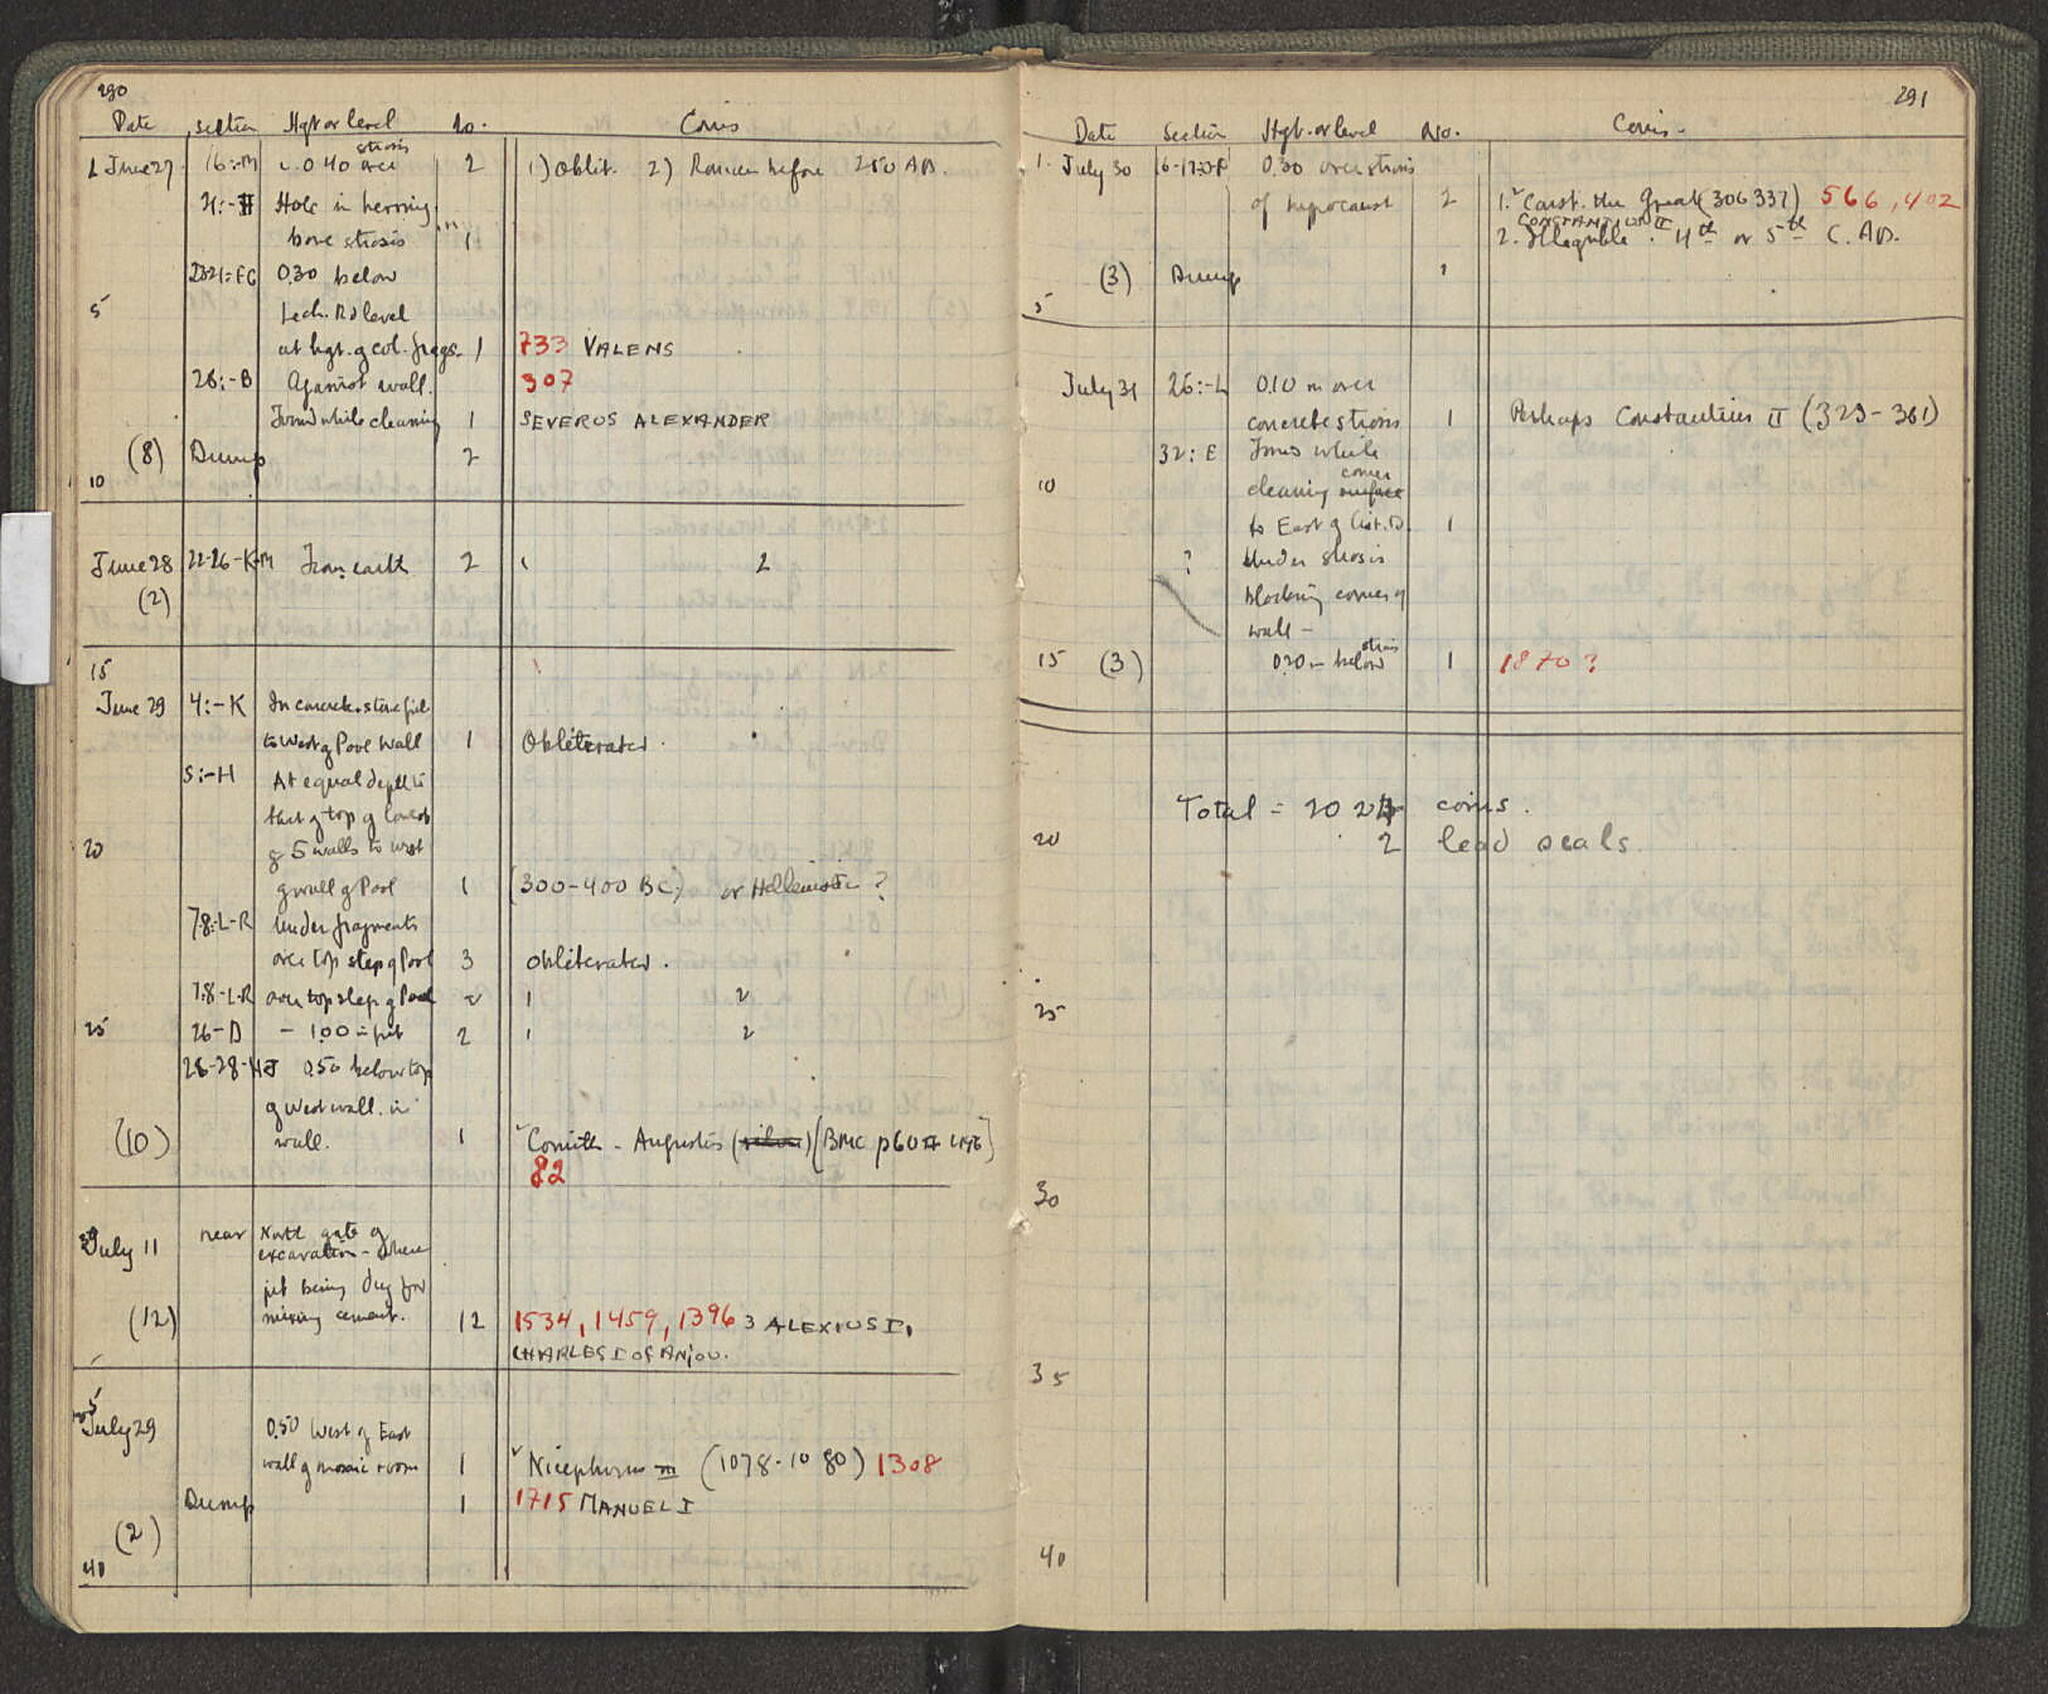 290
Date section Hgt or level No. Coins
1 June 27 16:-M c. 0.40 over strosis 2 1) Oblit. 2) Roman before 250 AD.
Hole in herring
bone strosis 1
0.30 below
5 Lech. Rd level
at hgt. of col. frags. 1 733 VALENS
26:-B Against wall. 307
Found while cleaning 1 SEVERUS ALEXANDER
(8) Dump 2
10
June 28 22-26-K-M From earth 2 1 2
(2)
15
June 29 4:-K In concrete & stone fill
to West of Pool Wall 1 Obliterated.
5:-H At equal depth to
that of top of lowest
20 of 5 walls to west
of wall of Pool 1 (300-400 BC) or Hellenistic?
7-8:-L-R Under fragments
over top step of Pool 3 obliterated.
7-8-L-R over top step of Pool 2 1 2
25 26-D - 1.00 in pit 2 1 2
26-28-HJ 0.50 below top
of West wall. in
(10) wall. 1 Corinth - Augustus (silver) [BMC p60
82
July 11 near North gate of
excavation - where
pit being dug for
(12) mixing cement. 12 1534, 1459, 1396 3 ALEXIUS I,
CHARLES I OF ANJOU.
35
July 29 0.50 West of East
wall of mosaic room 1 Nicephorus III (1078-1080) 1308
Dump 1 1715 MANUEL I
(2)
40
291
Date Section Hgt. or level No. Coins -
1. July 30 0.30 over strosis
of hypocaust 2 1. Const. the Great (306 337) 566, 402
CONSTANTIUS II
2. Illegible. 4th or 5th C. AD.
(3) Dump 1
5
July 31 26:-L 0.10 m over
concrete strosis 1 Perhaps Constantius II (323-361)
32:E Found while
10 cleaning surface corner
to East of Cist. D. 1
? Under strosis
blocking corner of
wall -
15 (3) 0.20 m below strosis 1 1870?
Total = 2024 coins.
20 2 lead seals.
25
30
35
40